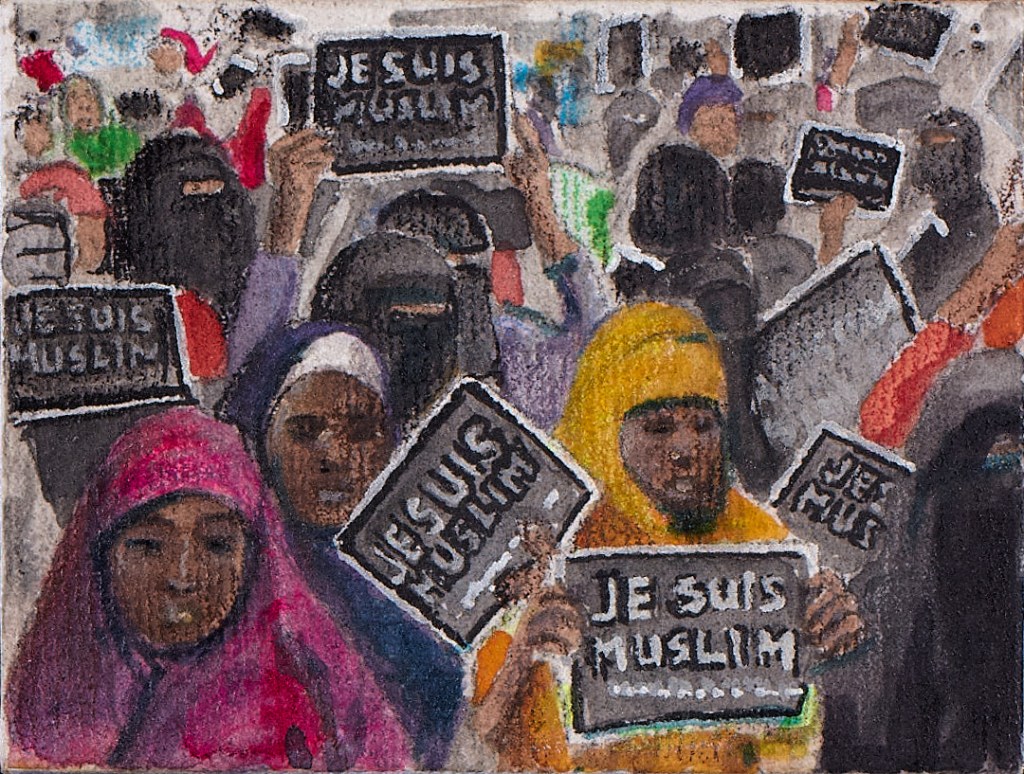 JE SUIS
MUSLIM
JE SUIS
MUSLIM
JE SUIS
MUSLIM
JE
MUS
JE SUIS
MUSLIM